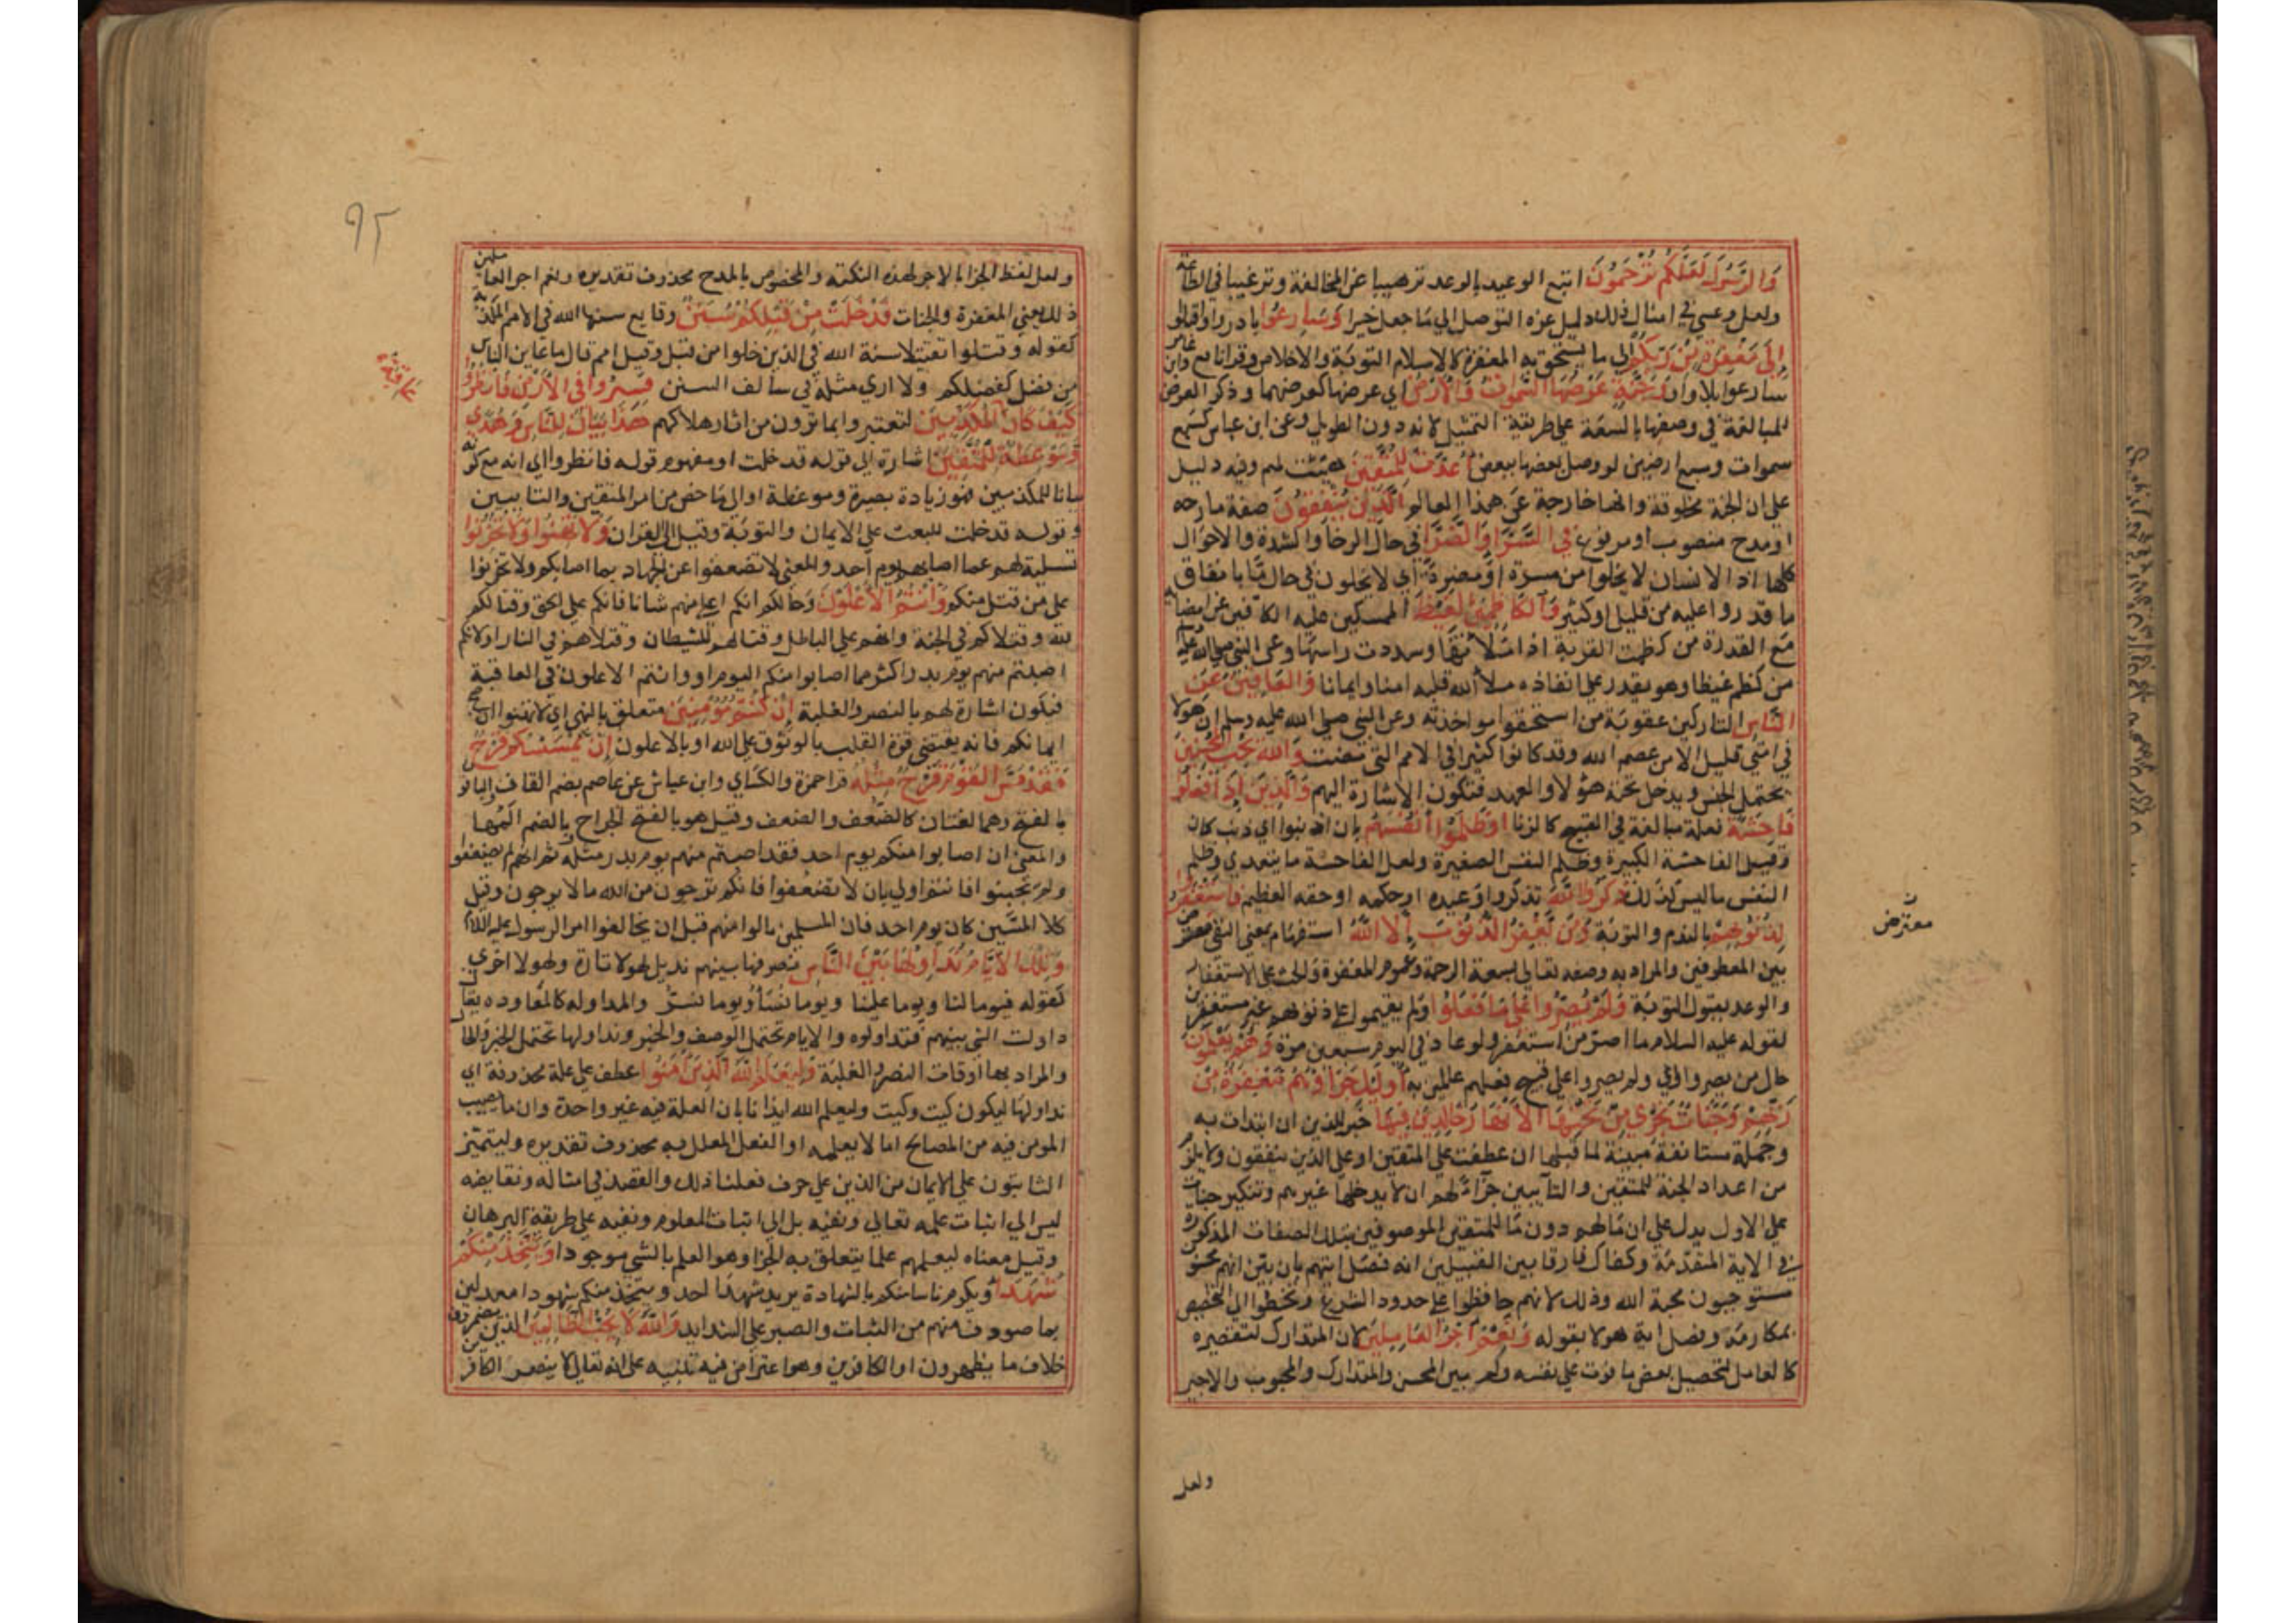 وَالرَّسُولَ لَعَلَّكُمْ تُرْحَمُونَ اتبع الوعيد بالوعد ترهيبا عن المخالفة وترغيبا في الطاعة
ولعل وعسي في امثال ذلك دليل عزه التوصل الي ما جعل خبرا له وَسَارِعُوا بادروا واقبلوا
إِلَى مَغْفِرَةٍ مِنْ رَبِّكُمْ الي ما يستحق به المغفرة كالاسلام والتوبة والاخلاص وقرا نافع وابن عامر
سارعوا بلا واو وَجَنَّةٍ عَرْضُهَا السَّمَوَاتُ وَالْأَرْضُ اي عرضها كعرضهما وذكر العرض
للمبالغة في وصفها بالسعة علي طريقة التمثيل لانه دون الطول وعن ابن عباس كسبع
سموات وسبع ارضين لو وصل بعضها ببعض أُعِدَّتْ لِلْمُتَّقِينَ هيئت لهم وفيه دليل
علي ان الجنة مخلوقة وانها خارجة عن هذا العالم الَّذِينَ يُنْفِقُونَ صفة مادحه
او مدح منصوب او مرفوع فِي السَّرَّا وَالضَّرَّا في حال الرخا والشدة والاحوال
كلها اذ الانسان لا يخلوا من مسرة او مضرة اي لا يخلون في حال ما بانفاق
ما قدروا عليه من قليل او كثير وَالْكَاظِمِينَ الْغَيْظَ الممسكين عليه الكافين عن امضايه
مع القدرة من كظمت القربة اذا ملأتها وسددت راسها وعن النبي صلي الله عليه
من كظم غيظا وهو يقدر علي انفاذه ملأ الله قلبه امنا وايمانا وَالْعَافِينَ عَنِ
النَّاسِ التاركين عقوبة من استحقوا مواخذته وعن النبي صلي الله عليه وسلم ان هولا
في امتي قليل الا من عصم الله وقد كانوا كثيرا في الامم التي مضت وَاللَّهُ يُحِبُّ الْمُحْسِنِينَ
يحتمل الجنس ويدخل تحته هؤلا والعهد فتكون الاشارة اليهم وَالَّذِينَ إِذَا فَعَلُوا
فَاحِشَةً فعلة مبالغة في القبح كالزنا أَوْ ظَلَمُوا أَنْفُسَهُمْ بان اذنبوا اي ذنب كان
وقيل الفاحشة الكبيرة وظلم النفس الصغيرة ولعل الفاحشة ما يتعدي وظلم
النفس ما ليس كذلك ذَكَرُوا اللَّهَ تذكروا وعيده او حكمه او حقه العظيم فَاسْتَغْفَرُوا
لِذُنُوبِهِمْ بالندم والتوبة وَمَنْ يَغْفِرُ الذُّنُوبَ إِلَّا اللَّهُ استفهام بمعني النفي معترض
بين المعطوفين والمراد به وصفه تعالي بسعة الرحمة وعموم المغفرة والحث علي الاستغفار
والوعد بقبول التوبة وَلَمْ يُصِرُّوا عَلَى مَا فَعَلُوا ولم يقيموا علي ذنوبهم غير مستغفرين
لقوله عليه السلام ما اصر من استغفر ولو عاد في اليوم سبعين مرة وَهُمْ يَعْلَمُونَ
حال من يصروا اي ولم يصروا علي قبيح فعلهم عالمين به أُولَئِكَ جَزَاؤُهُمْ مَغْفِرَةٌ مِنْ
رَبِّهِمْ وَجَنَّاتٌ تَجْرِي مِنْ تَحْتِهَا الْأَنْهَارُ خَالِدِينَ فِيهَا خبر للذين ان ابتدات به
وجملة مستانفة مبينة لما قبلها ان عطفت علي المتقين او علي الذين ينفقون ولا يلزم
من اعداد الجنة للمتقين والتايبين جزاء لهم ان لا يدخلها غيرهم وتنكير جنات
علي الاول يدل علي ان ما لهم دون ما للمتقين الموصوفين بتلك الصفات المذكورة
في الاية المتقدمة وكفاك فارقا بين القبيلين انه فصل ايتهم بان بين انهم محسنون
مستوجبون محبة الله وذلك لانهم حافظوا علي حدود الشرع وتخطوا الي التخصيص
بمكارمه وفصل اية هولا بقوله وَنِعْمَ أَجْرُ الْعَامِلِينَ لان المتدارك لتقصيره
كالعامل لتحصيل بعض ما فوت علي نفسه وكم بين المحسن والمتدارك والمحبوب والاجير
معترض
ولعل
٩٢
ولعل لفظ الجزا بالاجر لهذه النكتة والمخصوص بالمدح محذوف تقديره ونعم اجر العاملين
ذلك يعني المغفرة والجنات قَدْ خَلَتْ مِنْ قَبْلِكُمْ سُنَنٌ وقايع سنها الله في الامم المكذبة
كقوله وقتلوا تقتيلا سنة الله في الذين خلوا من قبل وقيل امم قال ما عاين الناس
من فضل كفضلكم ولا اري مثله في سالف السنن فَسِيرُوا فِي الْأَرْضِ فَانْظُرُوا
كَيْفَ كَانَ الْمُكَذِّبِينَ لتعتبروا بما ترون من اثار هلاكهم هَذَا بَيَانٌ لِلنَّاسِ وَهُدًى
وَمَوْعِظَةٌ لِلْمُتَّقِينَ اشارة الي قوله قد خلت او مفهوم قوله فانظروا اي انه مع كونه
بيانا للمكذبين فهو زيادة بصيرة وموعظة او الي ما لخص من امر المتقين والتايبين
وقوله قد خلت للبعث علي الايمان والتوبة وقيل الي القران وَلَا تَهِنُوا وَلَا تَحْزَنُوا
تسلية لهم عما اصابهم يوم احد والمعني لا تضعفوا عن الجهاد بما اصابكم ولا تحزنوا
علي من قتل منكم وَأَنْتُمُ الْأَعْلَوْنَ وحالكم انكم اعلا منهم شانا فانكم علي الحق وقتالكم
لله وقتلاكم في الجنة وانهم علي الباطل وقتالهم للشيطان وقتلاهم في النار او لانكم
اصبتم منهم يوم بدر اكثر مما اصابوا منكم اليوم او وانتم الاعلون في العاقبة
فيكون اشارة لهم بالنصر والغلبة إِنْ كُنْتُمْ مُؤْمِنِينَ متعلق بالنهي اي لا تهنوا ان صح
ايمانكم فانه يقتضي قوة القلب بالوثوق علي الله او بالاعلون إِنْ يَمْسَسْكُمْ قَرْحٌ
فَقَدْ مَسَّ الْقَوْمَ قَرْحٌ مِثْلُهُ قرا حمزة والكساي وابن عياش عن عاصم بضم القاف والباقون
بالفتح وهما لغتان كالضَّعف والضعف وقيل هو بالفتح الجراح وبالضم المها
والمعني ان اصابوا منكم يوم احد فقد اصبتم منهم يوم بدر مثله ثم انهم لم يضعفوا
ولم يجبنوا فانتم اولي بان لا تضعفوا فانكم ترجون من الله ما لا يرجون وقيل
كلا المسين كان يوم احد فان المسلمين نالوا منهم قبل ان يخالفوا امر الرسول عليه السلام
وَتِلْكَ الْأَيَّامُ نُدَاوِلُهَا بَيْنَ النَّاسِ نصرفها بينهم نديل لهولا تارة ولهولا اخري
كقوله فيوما لنا ويوما علينا ويوما نُسَأُ ويوما نسر والمداوله كالمعاوده يقال
داولت الشي بينهم فتداولوه والايام تحتمل الوصف والخبر ونداولها تحتمل الخبر والحال
والمراد بها اوقات النصر والغلبة وَلِيَعْلَمَ اللَّهُ الَّذِينَ آمَنُوا عطف علي علة محذوفة اي
نداولها ليكون كيت وكيت وليعلم الله ايذانا بان العلة فيه غير واحدة وان ما يصيب
المومن فيه من المصالح ما لا يعلمه او الفعل المعلل به محذوف تقديره وليتميز
الثابتون علي الايمان من الذين علي حرف فعلنا ذلك والقصد في امثاله ونقايضه
ليس الي اثبات علمه تعالي ونفيه بل الي اثبات المعلوم ونفيه علي طريقة البرهان
وقيل معناه ليعلمهم علما يتعلق به الجزا وهو العلم بالشي موجودا وَيَتَّخِذَ مِنْكُمْ
شُهَدَا ويكرم ناسا منكم بالشهادة يريد شهدا احد او يتخذ منكم شهودا معدلين
بما صودف منهم من الثبات والصبر علي الشدايد وَاللَّهُ لَا يُحِبُّ الظَّالِمِينَ الذين يضمرون
خلاف ما يظهرون او الكافرين وهو اعتراض فيه تنبيه علي انه تعالي لا ينصر الكافرين
عاقبة